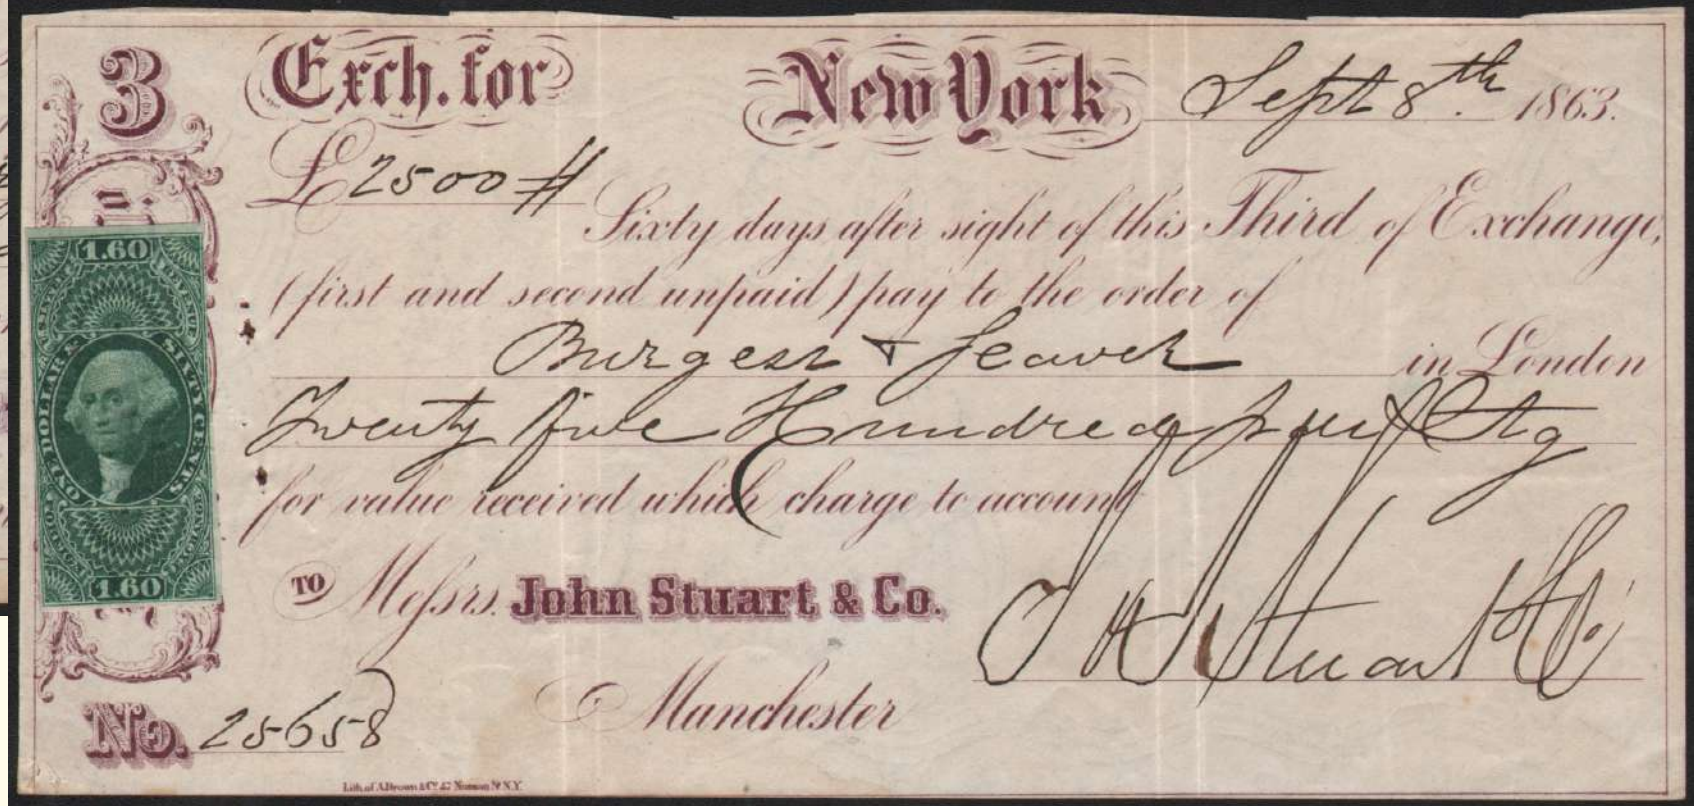 3 Exch. for New York Sept 8th. 1863.
£2500 //
Sixty days after sight of this Third of Exchange,
(first and second unpaid) pay to the order of
Burgess & in London
Twenty five Hundred Stg
for value received which charge to account
TO Messrs. John Stuart & Co. J & J Stuart & Co.
Manchester
No. 25658
1.60
U.S. INTER. REVENUE
ONE DOLLAR & SIXTY CENTS
FOREIGN EXCHANGE
1.60
Lith. of A. Brown & Co. 47 Nassau St. N.Y.